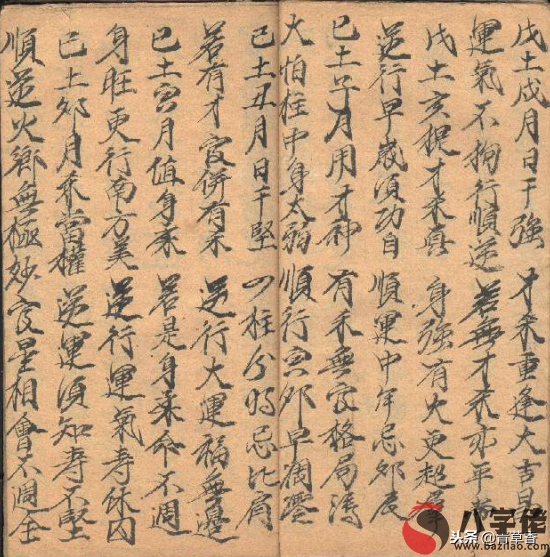 戊土戌月日干強 才杀重逢大吉昌
運氣不拘行順逆 若無才杀亦平常
戊土亥提才杀真 身強有火更超羣
逆行早歲須功自 順運中年忌卯辰
己土子月用才神 有杀無官格局清
大怕柱中身太弱 順行寅卯早凋零
己土丑月日干堅 四柱分明忌比肩
若有才官併有杀 逆行大運福無邊
己土寅月值身柔 若是身柔命不週
身旺更行南方美 逆行運氣寿休囚
己土卯月杀當權 逆運須知寿不堅
順逆火鄉無極妙 官星相會不週全
八字佬
www.bazilao.com
头条